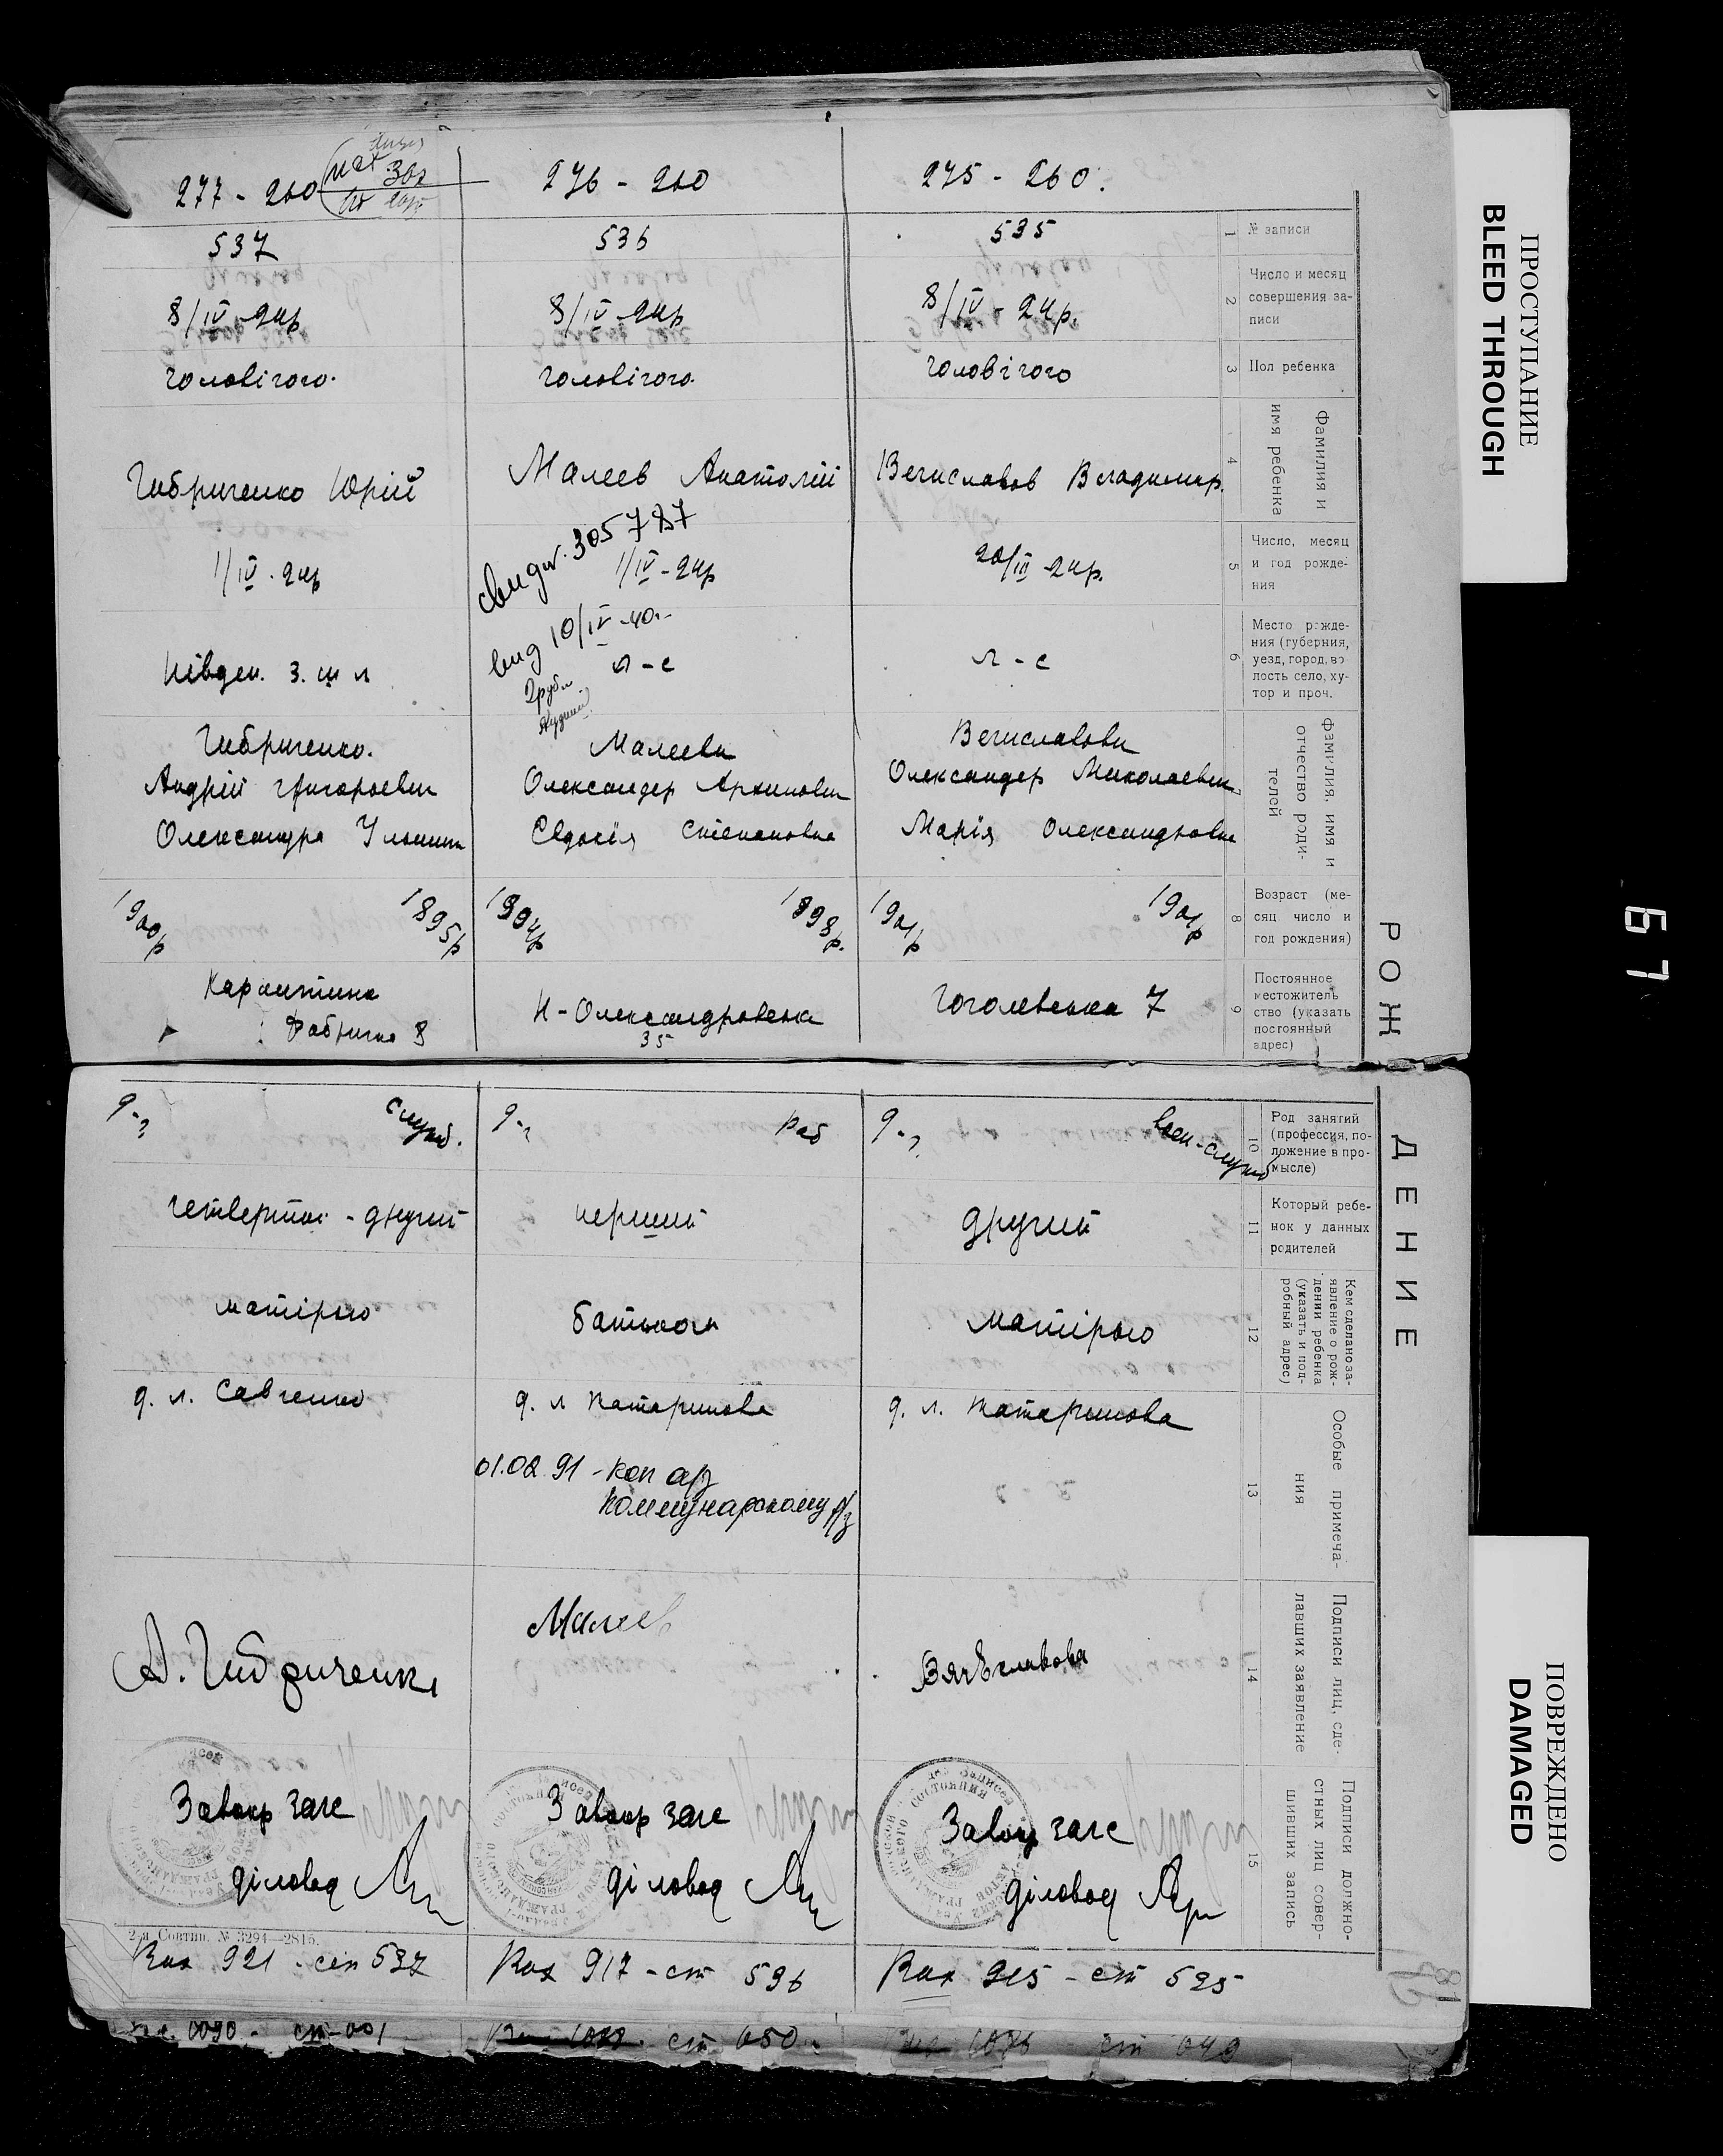 277 - 260
276 - 260
275 - 260.
537
536
535
1
№ записи
8/IV - 24р
8/IV - 24р
8/IV - 24р.
2
Число и месяц
совершения за-
писи
чоловічого.
чоловічого.
чоловічого
3
Пол ребенка
Гибриченко Юрій
Малеев Анатолій
Вечиславов Владимир.
4
Фамилия и
имя ребенка
свидет. 305787
1/IV - 24р
1/IV - 24р
20/III - 24р.
5
Число, месяц
и год рожде-
ния
вид 10/IV - 40.-
Півден. З. ш л
л - с
л - с
6
Место рожде-
ния (губерния,
уезд, город, во
лость село, ху-
тор и проч.
Гибриченко.
Андрій Григорович
Олександра Ульянів
Малееви
Олександер Архипович
Євдокія Степановна
Вечиславови
Олександер Миколаевич
Марія Олександровна
фамилия, имя и
отчество роди-
телей
1900р 1895р
1894р 1898р.
1901р 1901р
8
Возраст (ме-
сяц число и
год рождения)
Карантинна
Фабрична 8
Н - Олександровска
35
Гоголевська 7
9
Постоянное
местожитель
ство (указать
постоянный
адрес)
РОЖ
ДЕНИЕ
служ.
раб
воен-служ
10
Род занятий
(профессия, по-
ложение в про-
мысле)
четвертий - другий
перший
другий
11
Который ребе-
нок у данных
родителей
матірью
батьком
матірью
12
Кем сделано за-
явление о рож-
дении ребенка
(указать и под-
робный адрес)
д. л. Савченко
д. л Катаринова
д. л. Катаринова
01.02.91 - коп а/з
Коммунарскому р/з
13
Особые примеча-
ния
А. Гибриченко
Малеев
Вячѣславова
14
Подписи лиц, сде-
лавших заявление
Завокр загс
діловод
Завокр загс
діловод
Завокр загс
діловод
15
Подписи должно-
стных лиц совер-
шивших запись
2-я Совтип. № 3294—2815.
Вах 921 - ст 537
Вах 917 - ст 536
Вах 915 - ст 535
ст 050
ПРОСТУПАНИЕ
BLEED THROUGH
67
ПОВРЕЖДЕНО
DAMAGED